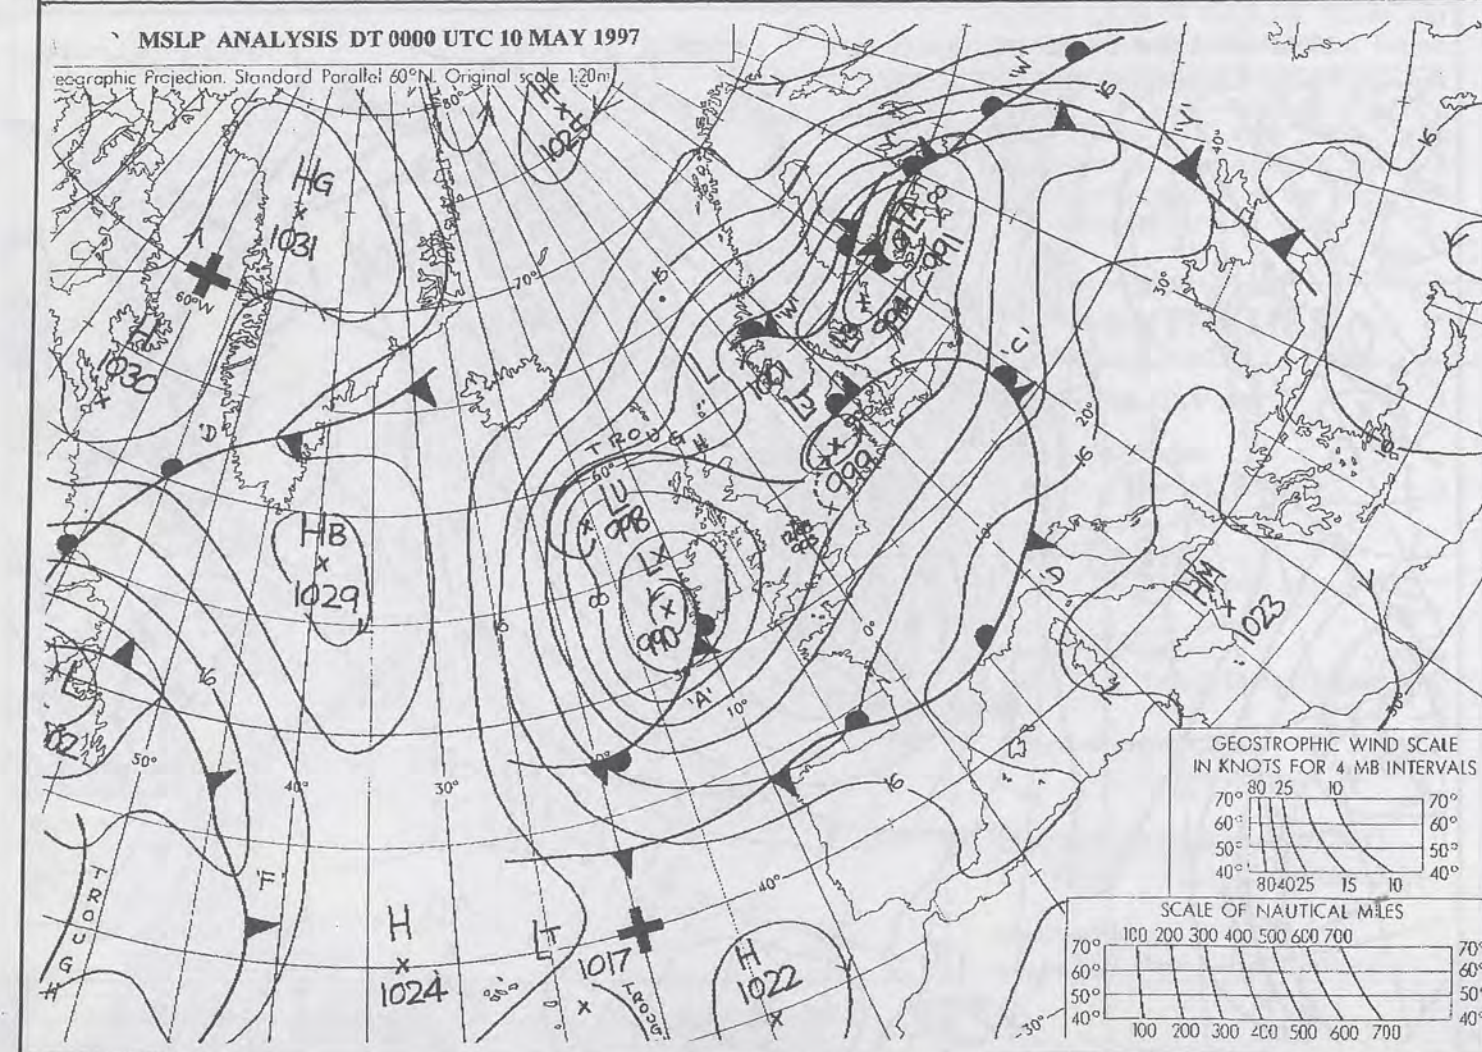 MSLP ANALYSIS DT 0000 UTC 10 MAY 1997
eographic Projection. Standard Parallel 60°N. Original scale 1:20m
80°
H
1025
'W'
16
'Y'
40°
16
HG
1031
60°W
70°
16
LA
991
30°
H
1030
'W'
994
L
'C'
20°
'D'
16
TROUGH
60°
999
LU
998
HB
1029
LX
990
8
'D'
HM
1023
0°
'A'
10°
16
L
50°
40°
30°
16
40°
'F'
TROUGH
H
1024
LT
1017
TROUGH
H
1022
30°
GEOSTROPHIC WIND SCALE
IN KNOTS FOR 4 MB INTERVALS
80 25 10
70° 70°
60° 60°
50° 50°
40° 40°
80 40 25 15 10
SCALE OF NAUTICAL MILES
100 200 300 400 500 600 700
70° 70°
60° 60°
50° 50°
40° 40°
100 200 300 400 500 600 700